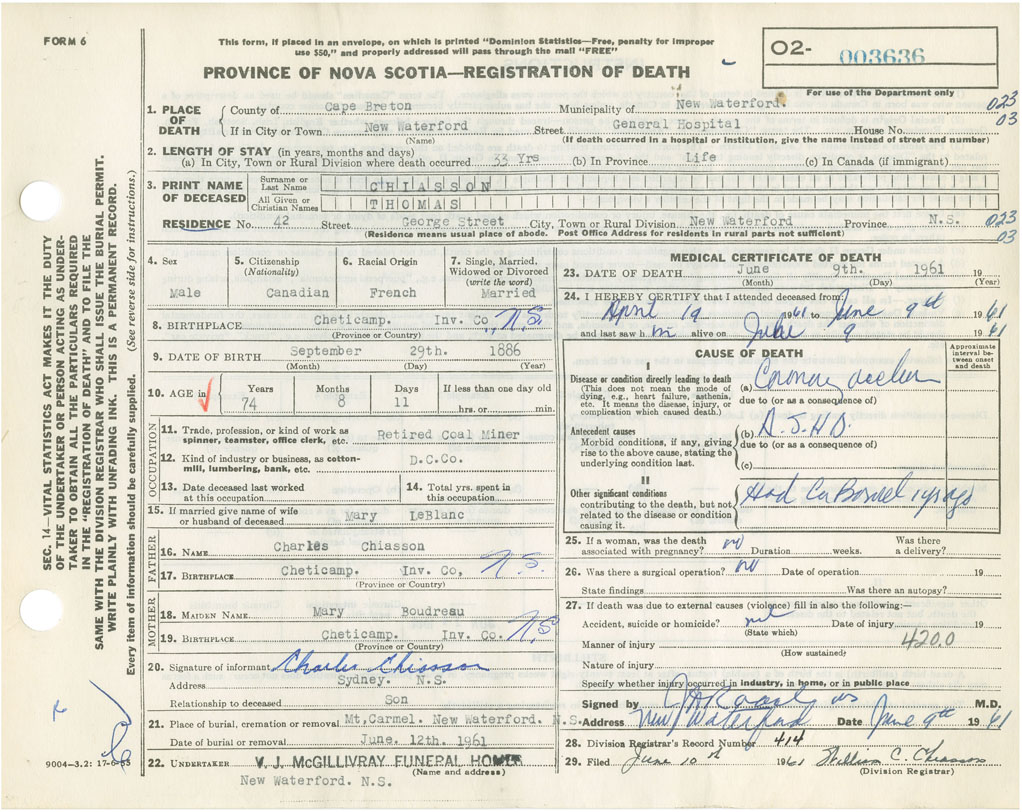 FORM 6
This form, if placed in an envelope, on which is printed "Dominion Statistics—Free, penalty for improper
use $50," and properly addressed will pass through the mail "FREE"
02- 003636
For use of the Department only
PROVINCE OF NOVA SCOTIA—REGISTRATION OF DEATH
SEC. 14—VITAL STATISTICS ACT MAKES IT THE DUTY
OF THE UNDERTAKER OR PERSON ACTING AS UNDER-
TAKER TO OBTAIN ALL THE PARTICULARS REQUIRED
IN THE "REGISTRATION OF DEATH" AND TO FILE THE
SAME WITH THE DIVISION REGISTRAR WHO SHALL ISSUE THE BURIAL PERMIT.
WRITE PLAINLY WITH UNFADING INK. THIS IS A PERMANENT RECORD.
Every item of information should be carefully supplied. (See reverse side for instructions.)
9004—3.2: 17-6-53
1. PLACE OF DEATH
County of Cape Breton Municipality of New Waterford. 023
If in City or Town New Waterford Street General Hospital House No. 03
(Name) (If death occurred in a hospital or institution, give the name instead of street and number)
2. LENGTH OF STAY (in years, months and days)
(a) In City, Town or Rural Division where death occurred 33 Yrs (b) In Province Life (c) In Canada (if immigrant)
3. PRINT NAME OF DECEASED
Surname or Last Name CHIASSON
All Given or Christian Names THOMAS
RESIDENCE No. 42 Street George Street City, Town or Rural Division New Waterford Province N.S. 023
(Residence means usual place of abode. Post Office Address for residents in rural parts not sufficient) 03
4. Sex Male
5. Citizenship (Nationality) Canadian
6. Racial Origin French
7. Single, Married, Widowed or Divorced (write the word) Married
8. BIRTHPLACE Cheticamp. Inv. Co, N.S.
(Province or Country)
9. DATE OF BIRTH September 29th. 1886
(Month) (Day) (Year)
10. AGE in Years 74 Months 8 Days 11 If less than one day old hrs. or min.
OCCUPATION
11. Trade, profession, or kind of work as spinner, teamster, office clerk, etc. Retired Coal Miner
12. Kind of industry or business, as cotton-mill, lumbering, bank, etc. D.C.Co.
13. Date deceased last worked at this occupation
14. Total yrs. spent in this occupation
15. If married give name of wife or husband of deceased Mary LeBlanc
FATHER
16. NAME Charles Chiasson
17. BIRTHPLACE Cheticamp. Inv. Co, N.S.
(Province or Country)
MOTHER
18. MAIDEN NAME Mary Boudreau
19. BIRTHPLACE Cheticamp. Inv. Co. N.S
(Province or Country)
20. Signature of informant Charles Chiasson
Address Sydney. N.S.
Relationship to deceased Son
21. Place of burial, cremation or removal Mt, Carmel. New Waterford. N.S.
Date of burial or removal June. 12th. 1961
22. UNDERTAKER V. J. McGILLIVRAY FUNERAL HOME
(Name and address)
New Waterford. N.S.
MEDICAL CERTIFICATE OF DEATH
23. DATE OF DEATH June 9th. 1961 19
(Month) (Day) (Year)
24. I HEREBY CERTIFY that I attended deceased from:
April 19 1961 to June 9th 1961
and last saw him alive on June 9 1961
CAUSE OF DEATH
Approximate interval between onset and death
I
Disease or condition directly leading to death
(This does not mean the mode of dying, e.g., heart failure, asthenia, etc. It means the disease, injury, or complication which caused death.)
(a) Coronary
due to (or as a consequence of)
Antecedent causes
Morbid conditions, if any, giving rise to the above cause, stating the underlying condition last.
(b) A.S.H.D.
due to (or as a consequence of)
(c)
II
Other significant conditions
contributing to the death, but not related to the disease or condition causing it.
Had Ca Bowel yrs ago
25. If a woman, was the death associated with pregnancy? no Duration weeks. Was there a delivery?
26. Was there a surgical operation? no Date of operation 19
State findings Was there an autopsy?
27. If death was due to external causes (violence) fill in also the following:—
Accident, suicide or homicide? nil Date of injury 19
(State which)
Manner of injury 420.0
(How sustained)
Nature of injury
Specify whether injury occurred in industry, in home, or in public place
Signed by M.D.
Address New Waterford Date June 9th 1961
28. Division Registrar's Record Number 414
29. Filed June 10th 1961 William C. Chiasson
(Division Registrar)